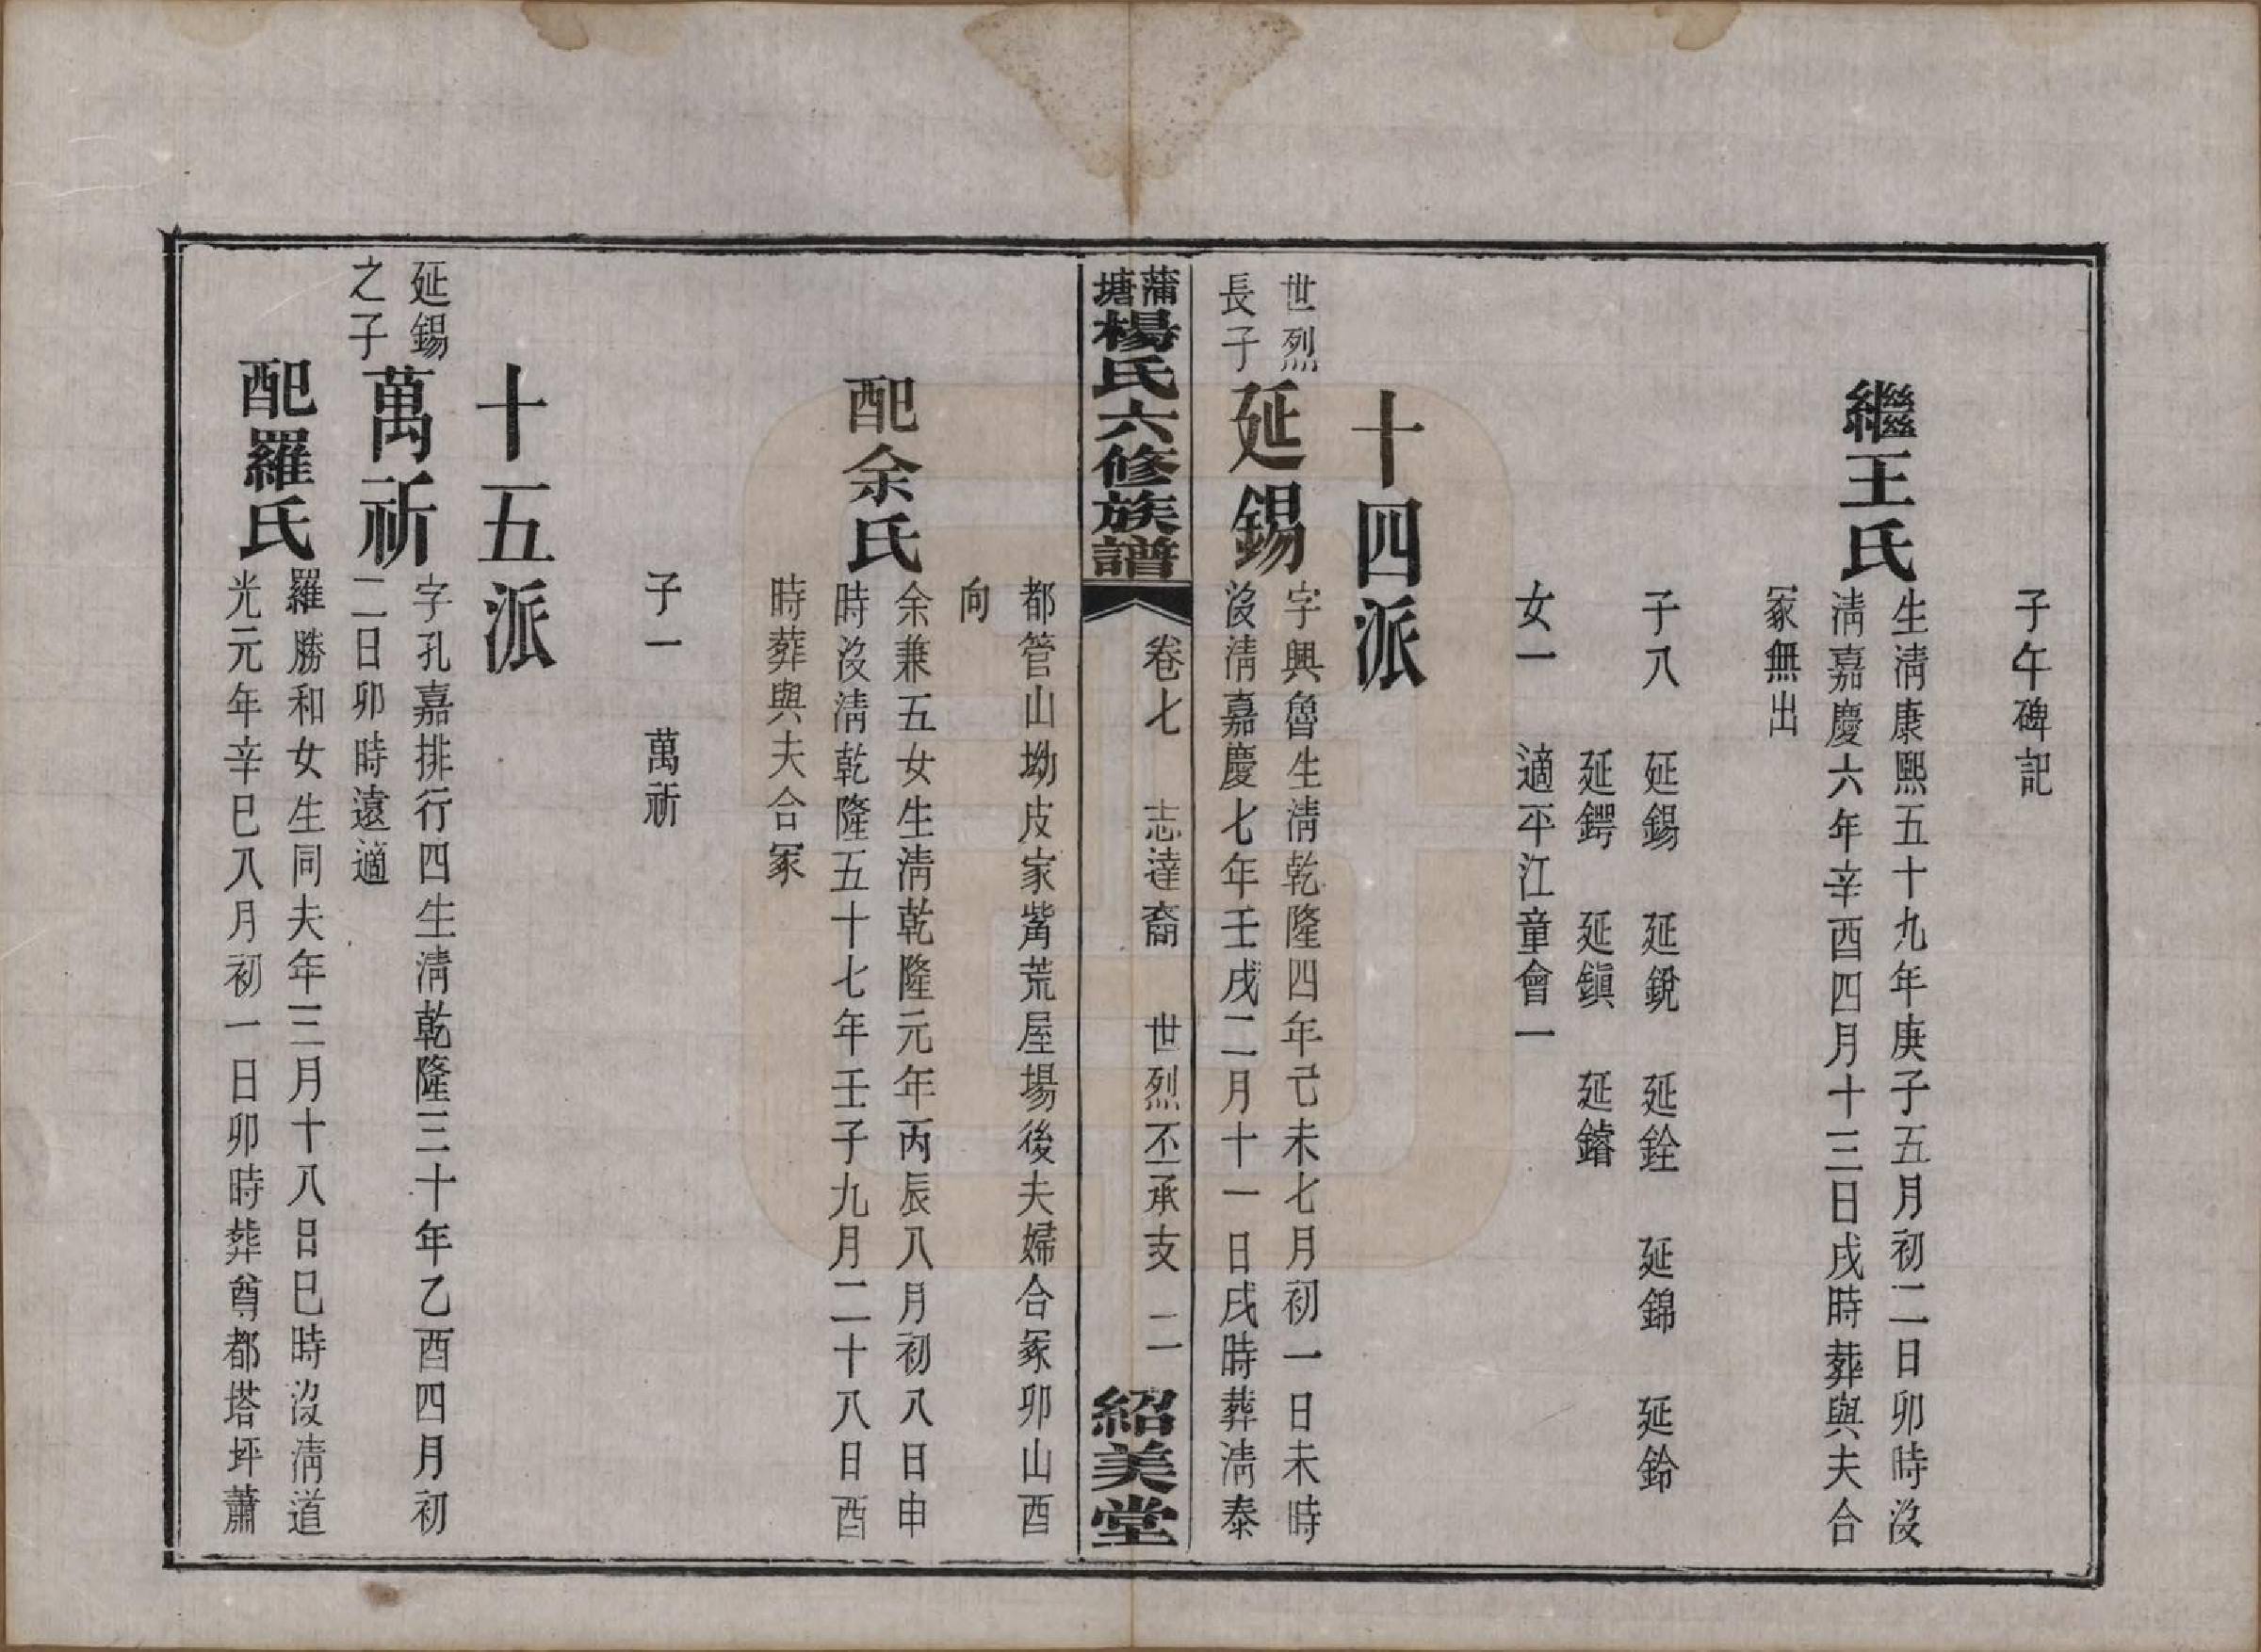 子午碑記
繼王氏
生淸康熙五十九年庚子五月初二日卯時沒
淸嘉慶六年辛酉四月十三日戌時葬與夫合
冢無出
子八 延錫 延銳 延銓 延錦 延鈴
延鍔 延鎭 延鏳
女一 適平江童會一
十四派
世烈
長子
延錫
字興魯生淸乾隆四年己未七月初一日未時
沒淸嘉慶七年壬戌二月十一日戌時葬淸泰
蒲塘楊氏六修族譜
卷七 志達裔 世烈丕承支 二
紹美堂
都管山坳皮家觜荒屋場後夫婦合冢卯山酉
向
配余氏
余兼五女生淸乾隆元年丙辰八月初八日申
時沒淸乾隆五十七年壬子九月二十八日酉
時葬與夫合冢
子一 萬祈
十五派
延錫
之子
萬祈
字孔嘉排行四生淸乾隆三十年乙酉四月初
二日卯時遠適
配羅氏
羅勝和女生同夫年三月十八日巳時沒淸道
光元年辛巳八月初一日卯時葬尊都塔坪蕭